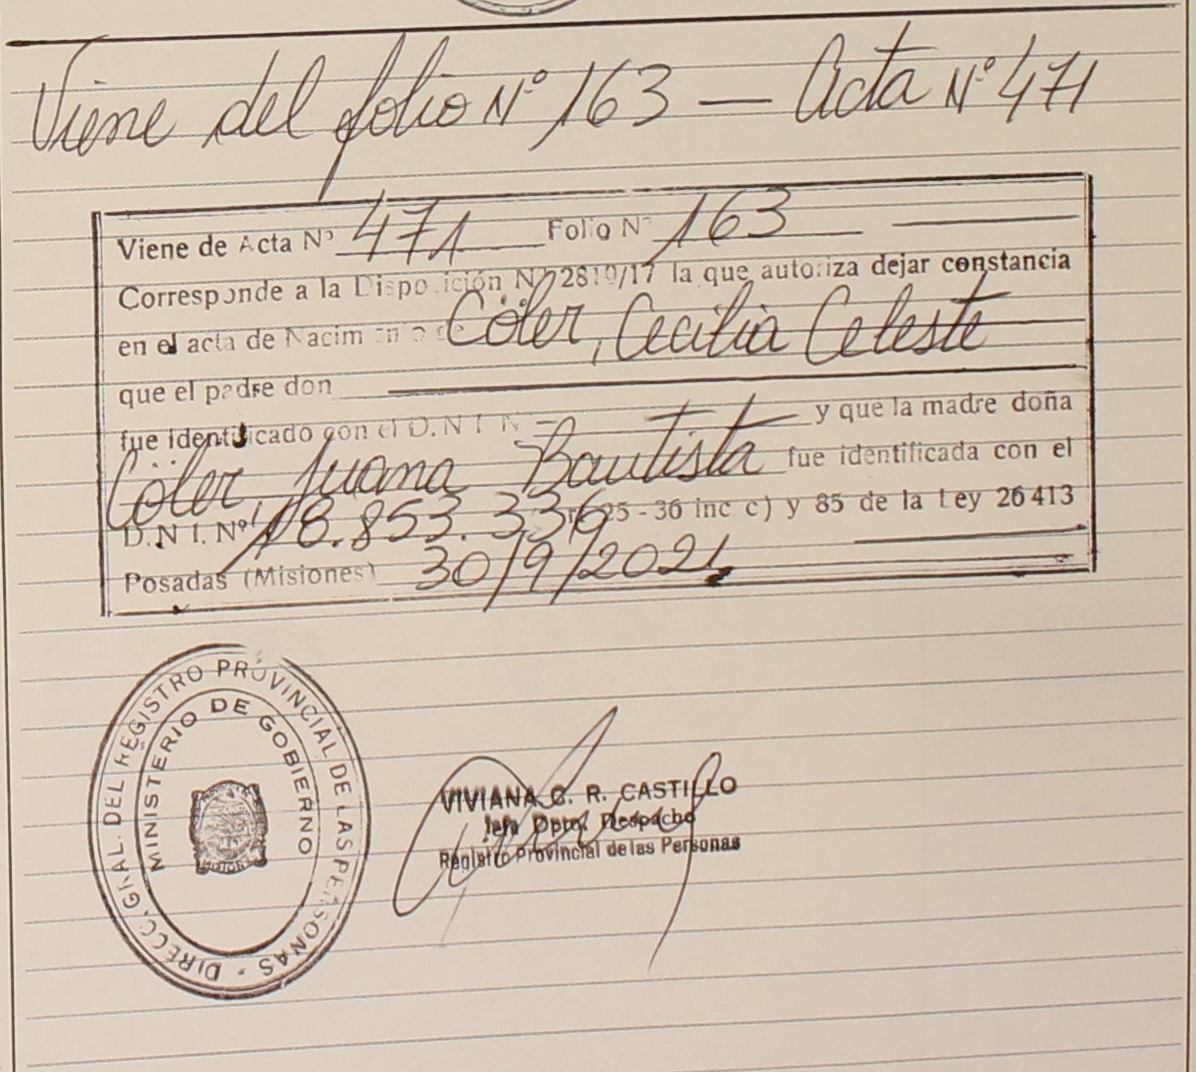 Viene del folio Nº 163 — Acta Nº 471
Viene de Acta Nº 471 Folio Nº 163
Corresponde a la Disposición Nº 2810/17 la que autoriza dejar constancia
en el acta de Nacimiento de Cöler, Cecilia Celeste
que el padre don
fue identificado con el D.N.I. Nº — y que la madre doña
Cöler, Juana Bautista fue identificada con el
D.N.I. Nº 18.853.336 25 - 36 inc c) y 85 de la Ley 26 413
Posadas (Misiones) 30/9/2021
DIRECC. GRAL. DEL REGISTRO PROVINCIAL DE LAS PERSONAS -
MINISTERIO DE GOBIERNO
VIVIANA G. R. CASTILLO
Jefa Dpto. Despacho
Registro Provincial de las Personas